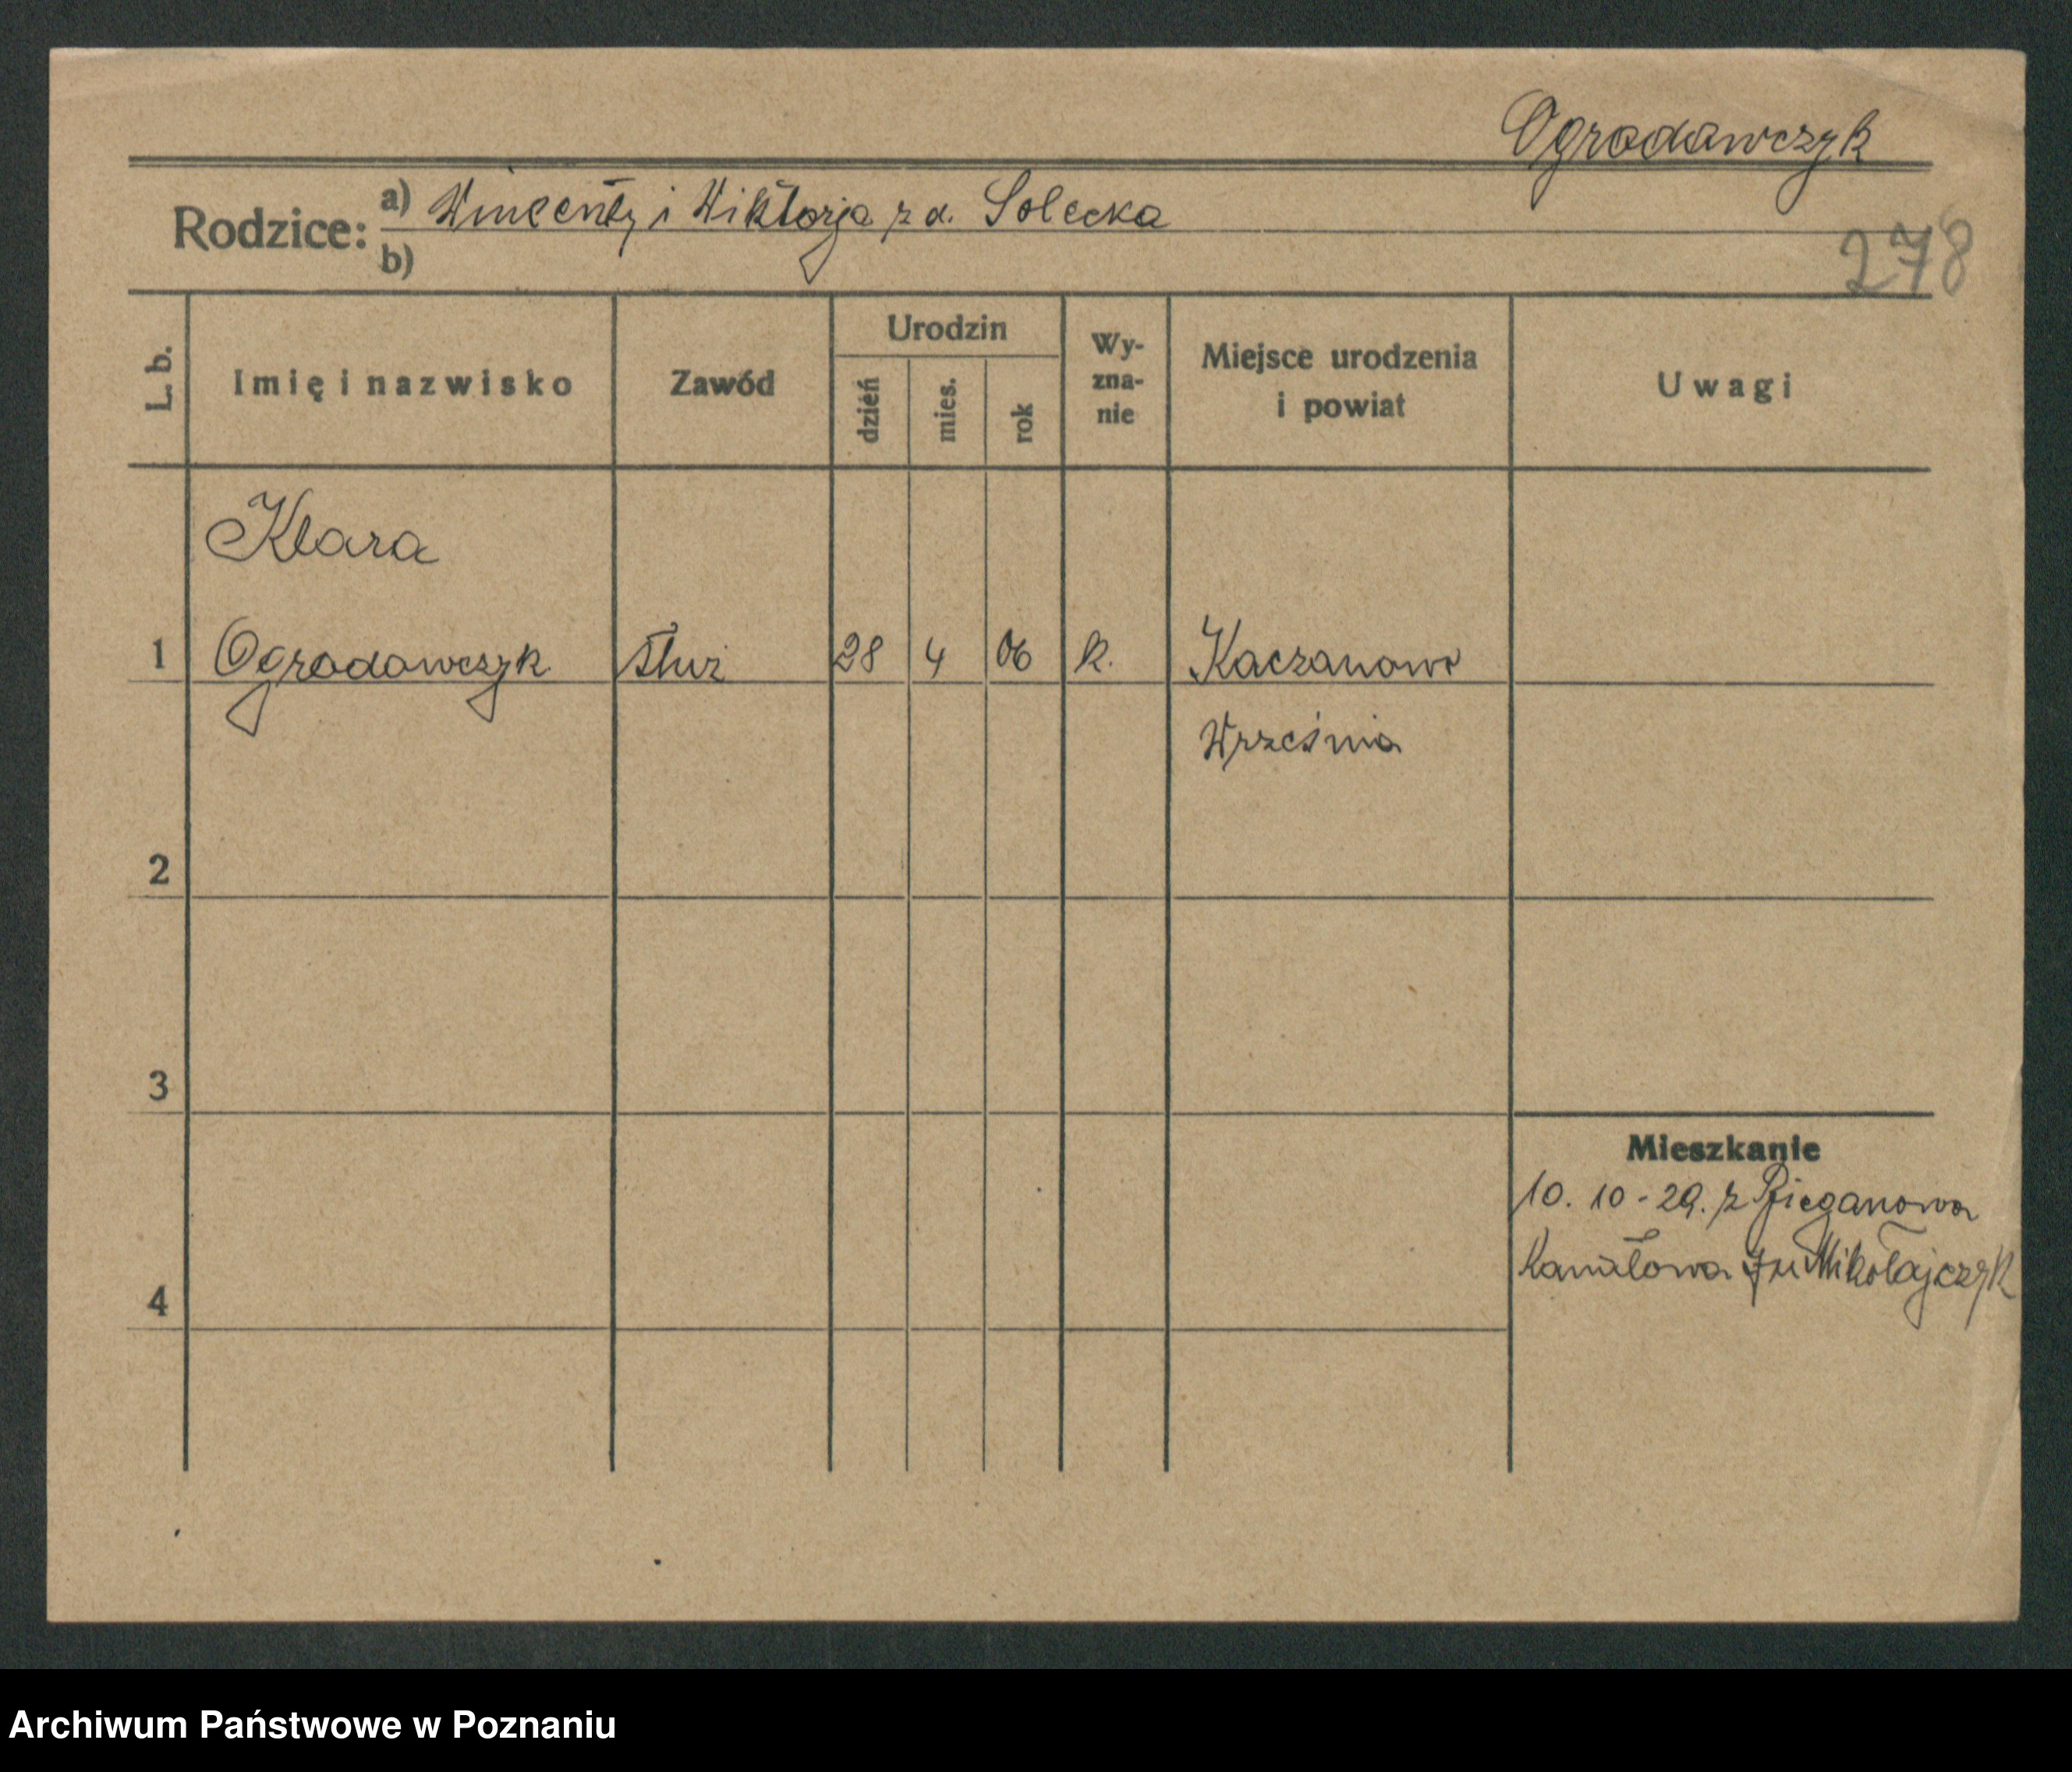 Ogrodowczyk
Rodzice: a) Wincenty i Wiktorja z d. Solecka
b)
278
L. b. Imię i nazwisko Zawód Urodzin dzień mies. rok Wy-zna-nie Miejsce urodzenia i powiat Uwagi
Klara
1 Ogrodowczyk służ 28 4 06 k. Kaczanowo
Września
2
3
Mieszkanie
10. 10 - 29. z Bieganowa
4 Kanałowa 7 u Mikołajczyk
Archiwum Państwowe w Poznaniu